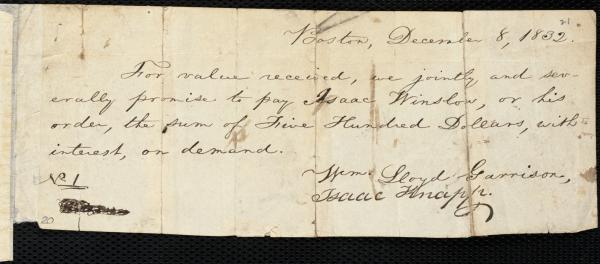 21
Boston, December 8, 1832.
For value received, we jointly and sev-
erally promise to pay Isaac Winslow, or his
order, the sum of Five Hundred Dollars, with
interest, on demand.
Wm. Lloyd Garrison,
Isaac Knapp.
No. 1
20